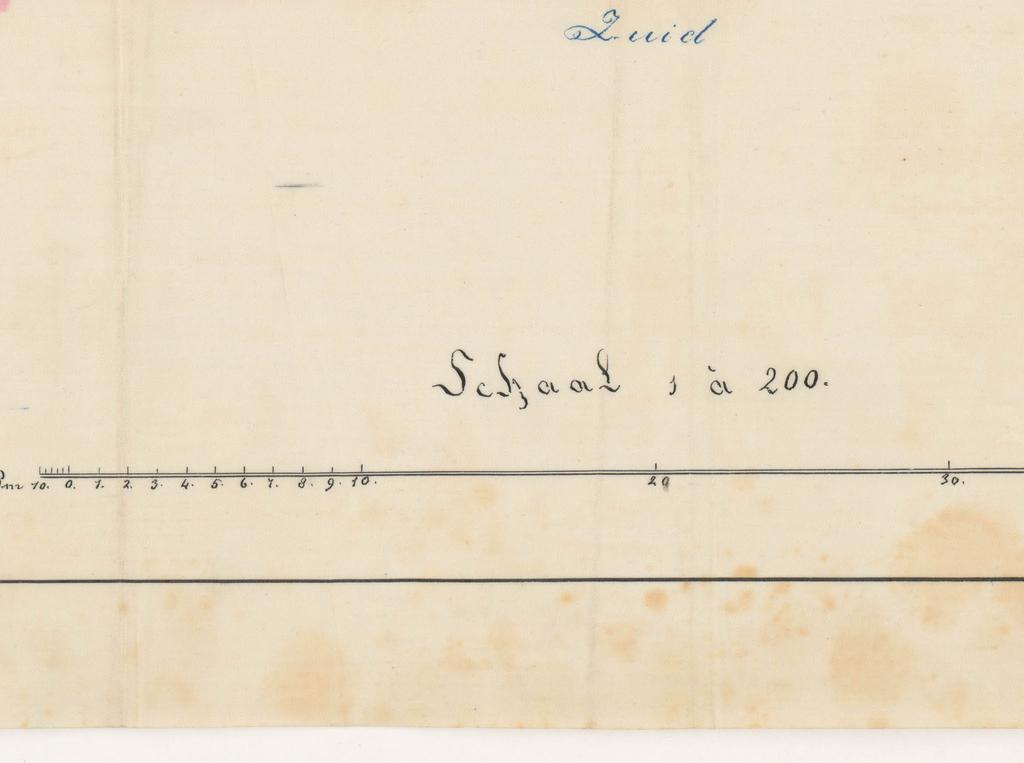 Zuid
Schaal 1 à 200.
10. 0. 1. 2. 3. 4. 5. 6. 7. 8. 9. 10. 20 30.